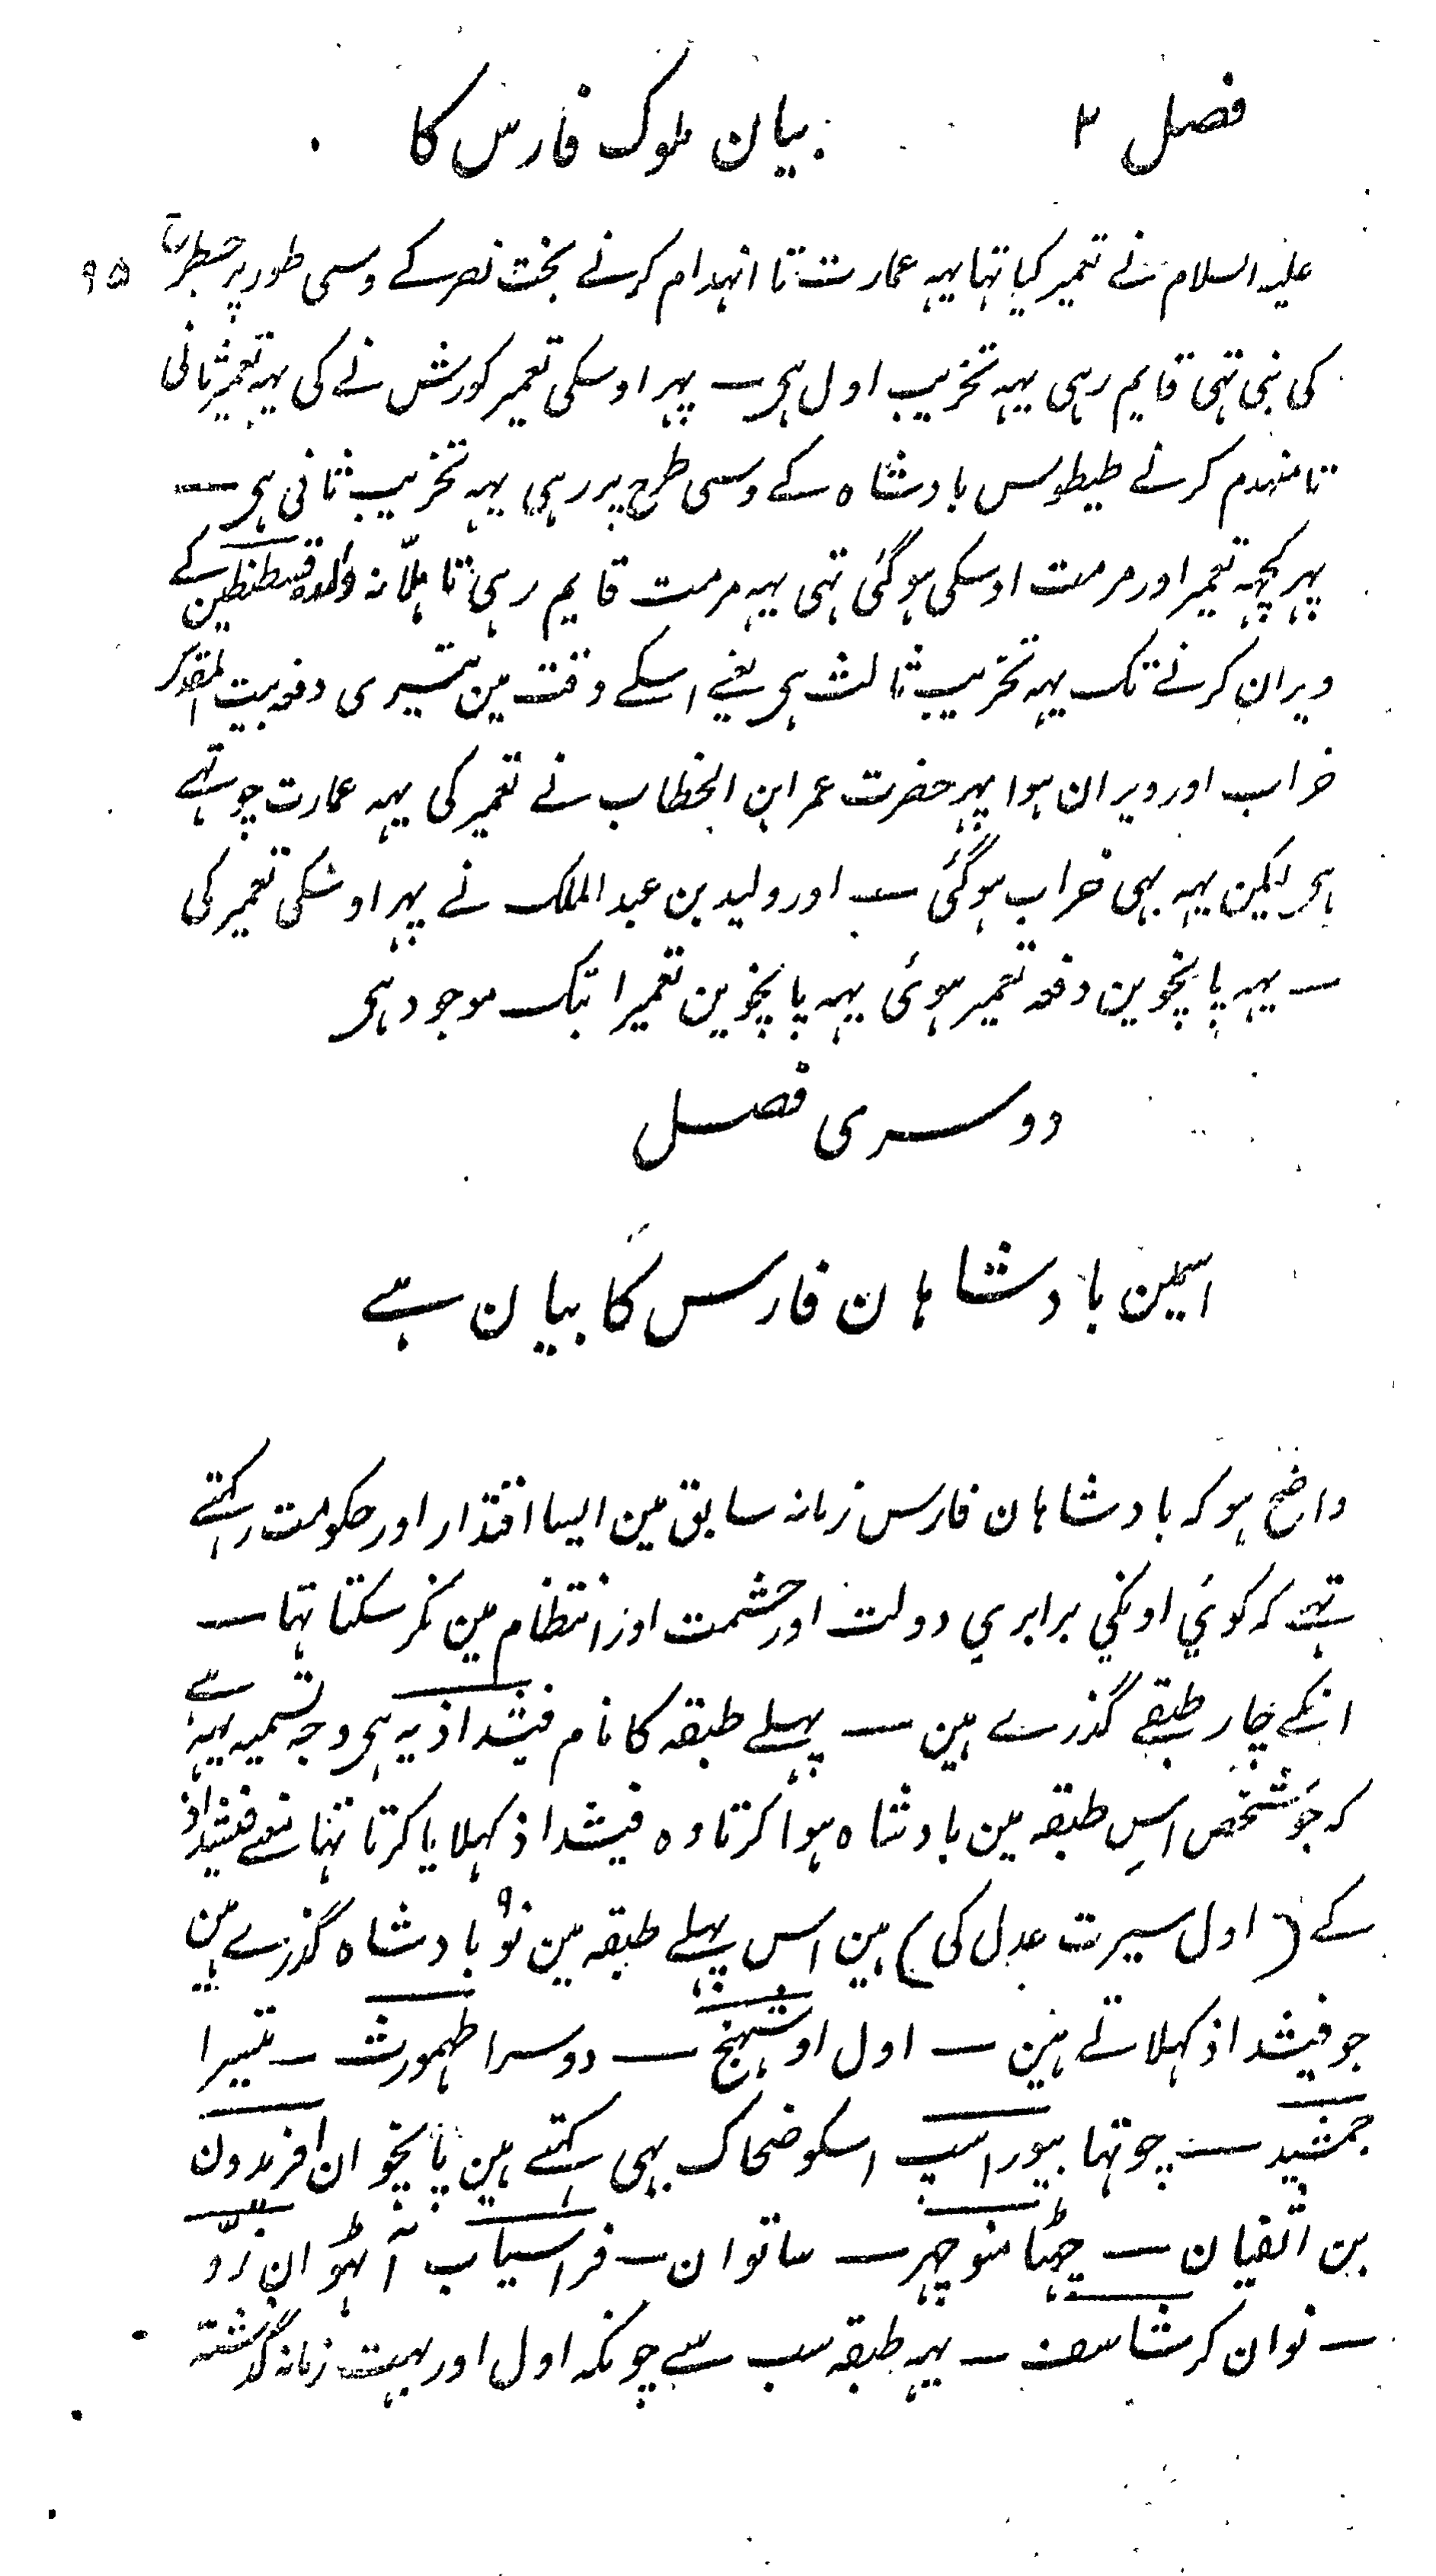 فصل ٢ بیان ملوک فارس کا
٩٥
علیہ السلام نے تعمیر کیا تہا یہہ عمارت تا انہدام کرنے بخت نصر کے وسی طور پر جسطرح
کی بنی تہی قایم رہی یہہ تخریب اول ہی ۔ پہر اوسکی تعمیر کورش نے کی یہہ تعمیر ثانی
تا منہدم کرنے طیطوس بادشاہ کے وسی طرح پر رہی یہہ تخریب ثانی ہی ۔
پہر کچہہ تعمیر اور مرمت اوسکی ہوگئی تہی یہہ مرمت قایم رہی تا ہلّانہ والدہ قسطنطین کے
ویران کرنے تک یہہ تخریب ثالث ہی یعنے اسکے وقت مین تیسری دفعہ بیت المقدس
خراب اور ویران ہوا پہر حضرت عمر ابن الخطاب نے تعمیر کی یہہ عمارت چوتہے
ہی لیکن یہہ بہی خراب ہوگئی ۔ اور ولید بن عبد الملک نے پہر اوسکی تعمیر کی
۔ یہہ پانچوین دفعہ تعمیر ہوئی یہہ پانچوین تعمیر ابتک موجود ہی
دوسری فصل
اسمین بادشاہان فارس کا بیان ہے
واضح ہو کہ بادشاہان فارس زمانہ سابق مین ایسا اقتدار اور حکومت رکہتے
تہے کہ کوئي اونکي برابري دولت اور حشمت اور انتظام مین نکر سکتا تہا ۔
انکے چار طبقے گذرے ہین ۔ پہلے طبقہ کا نام فیشداذیہ ہی وجہ تسمیہ یہہ ہے
کہ جو شخص اس طبقہ مین بادشاہ ہوا کرتا وہ فیشداذ کہلایا کرتا تہا معنے فیشداذ
کے (اول سیرت عدل کی) ہین اس پہلے طبقہ مین نو٩ بادشاہ گذرے ہین
جو فیشداذ کہلاتے ہین ۔ اول اوشہنج ۔ دوسرا طہمورث ۔ تیسرا
جمشید ۔ چوتہا بیوراسپ اسکو ضحاک بہی کہتے ہین پانچوان افریدون
بن اثفیان ۔ چہٹا منوچہر ۔ ساتوان ۔ فراسیاب آٹہوان زوّ
۔ نوان کرشاسف ۔ یہہ طبقہ سب سے چونکہ اول اور بہت زمانہ گذشتہ